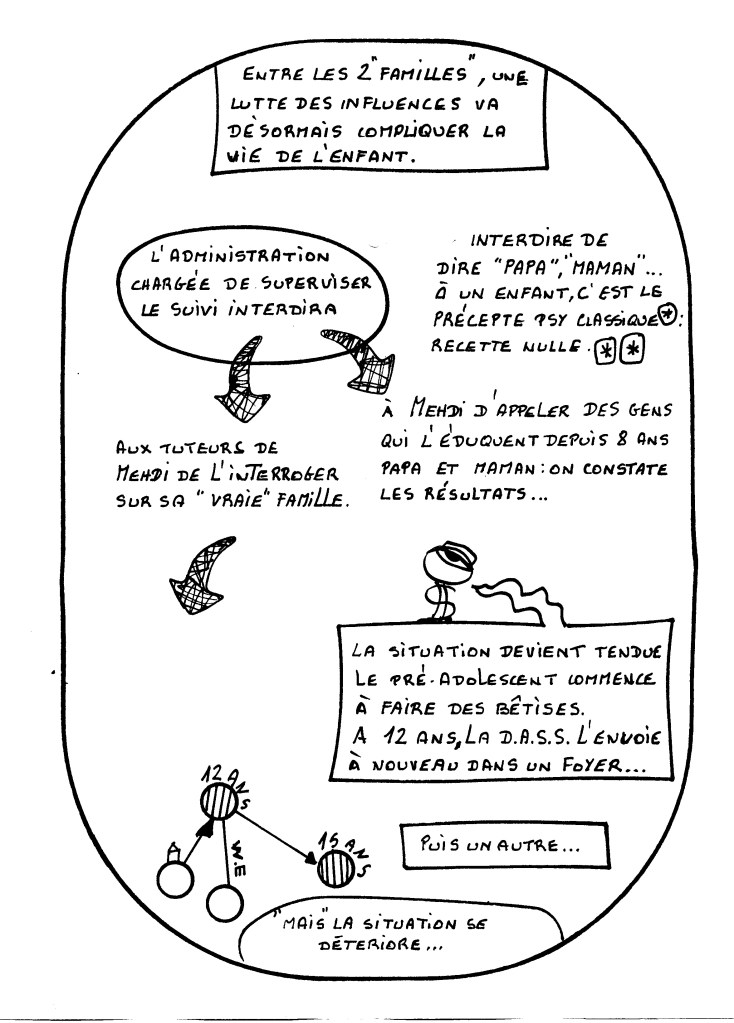 ENTRE LES 2 "FAMILLES", UNE
LUTTE DES INFLUENCES VA
DÉSORMAIS COMPLIQUER LA
VIE DE L'ENFANT.
L'ADMINISTRATION
CHARGÉE DE SUPERVISER
LE SUIVI INTERDIRA
INTERDIRE DE
DIRE "PAPA", "MAMAN"...
À UN ENFANT, C'EST LE
PRÉCEPTE PSY CLASSIQUE * :
RECETTE NULLE. * *
À MEHDI D'APPELER DES GENS
QUI L'ÉDUQUENT DEPUIS 8 ANS
PAPA ET MAMAN : ON CONSTATE
LES RÉSULTATS...
AUX TUTEURS DE
MEHDI DE L'INTERROGER
SUR SA "VRAIE" FAMILLE.
LA SITUATION DEVIENT TENDUE
LE PRÉ-ADOLESCENT COMMENCE
À FAIRE DES BÊTISES.
A 12 ANS, LA D.A.S.S. L'ENVOIE
À NOUVEAU DANS UN FOYER...
12 ANS
W.E
15 ANS
PUIS UN AUTRE...
"MAIS" LA SITUATION SE
DÉTERIORE...